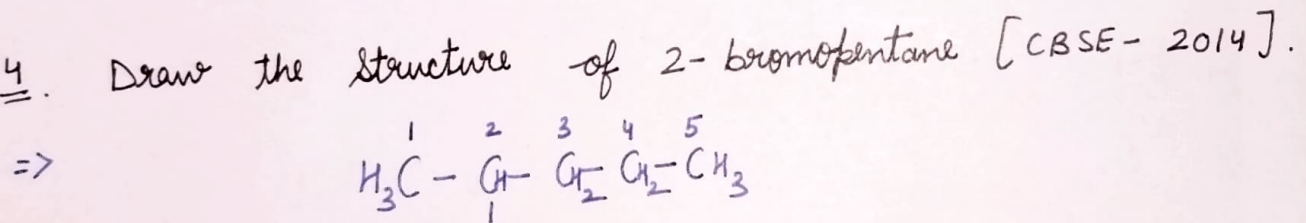 4. Draw the structure of 2-bromopentane [CBSE- 2014].
1 2 3 4 5
=> H₃C - CH - CH₂ - CH₂ - CH₃
|